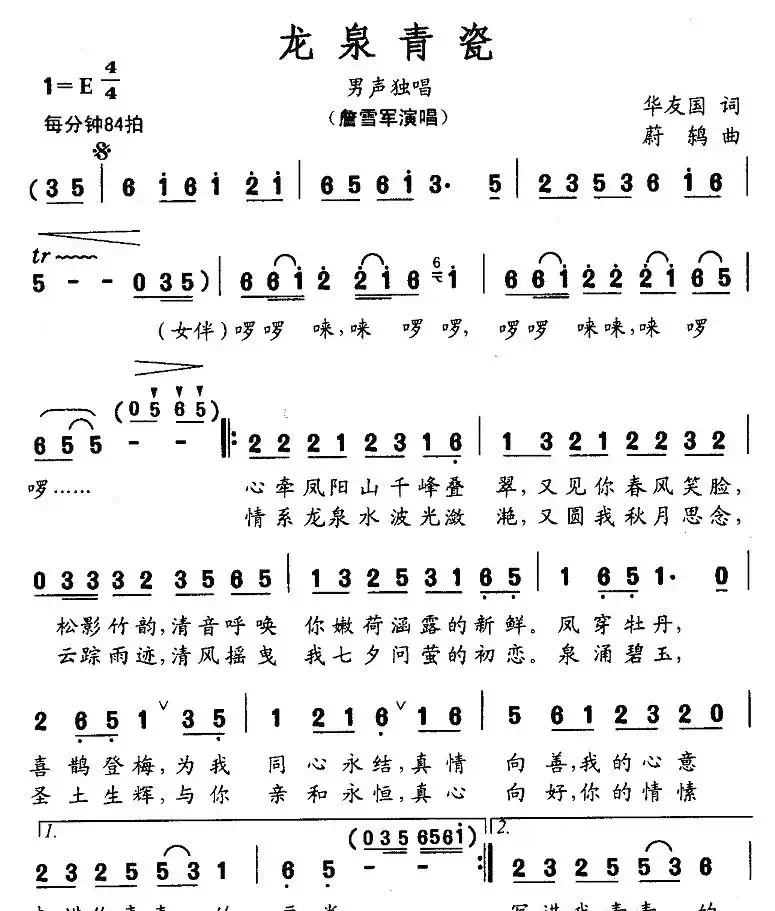 龙泉青瓷
1=E 4/4
男声独唱
(詹雪军演唱)
每分钟84拍
华友国 词
蔚鸫 曲
(3 5 | 6 1 6 1 2 1 | 6 5 6 1 3· 5 | 2 3 5 3 6 1 6 |
tr
5 - - 0 3 5) | 6 6 1 2 2 1 6 6 1 | 6 6 1 2 2 2 1 6 5 |
(女伴)啰啰 唻,唻 啰 啰, 啰啰 唻唻,唻 啰
(0 5 6 5)
6 5 5 - - |: 2 2 2 1 2 3 1 6 | 1 3 2 1 2 2 3 2 |
啰…… 心牵凤阳山千峰叠 翠,又见你春风笑脸,
情系龙泉水波光潋 滟,又圆我秋月思念,
0 3 3 3 2 3 5 6 5 | 1 3 2 5 3 1 6 5 | 1 6 5 1· 0
松影竹韵,清音呼唤 你嫩荷涵露的新鲜。 凤穿牡丹,
云踪雨迹,清风摇曳 我七夕问萤的初恋。 泉涌碧玉,
2 6 5 1 ∨ 3 5 | 1 2 1 6 ∨ 1 6 | 5 6 1 2 3 2 0 |
喜鹊登梅,为我 同心永结,真情 向善,我的心意
圣土生辉,与你 亲和永恒,真心 向好,你的情愫
1. (0 3 5 6 5 6 1) 2.
2 3 2 5 5 3 1 | 6 5 - - :| 2 3 2 5 5 3 6 |